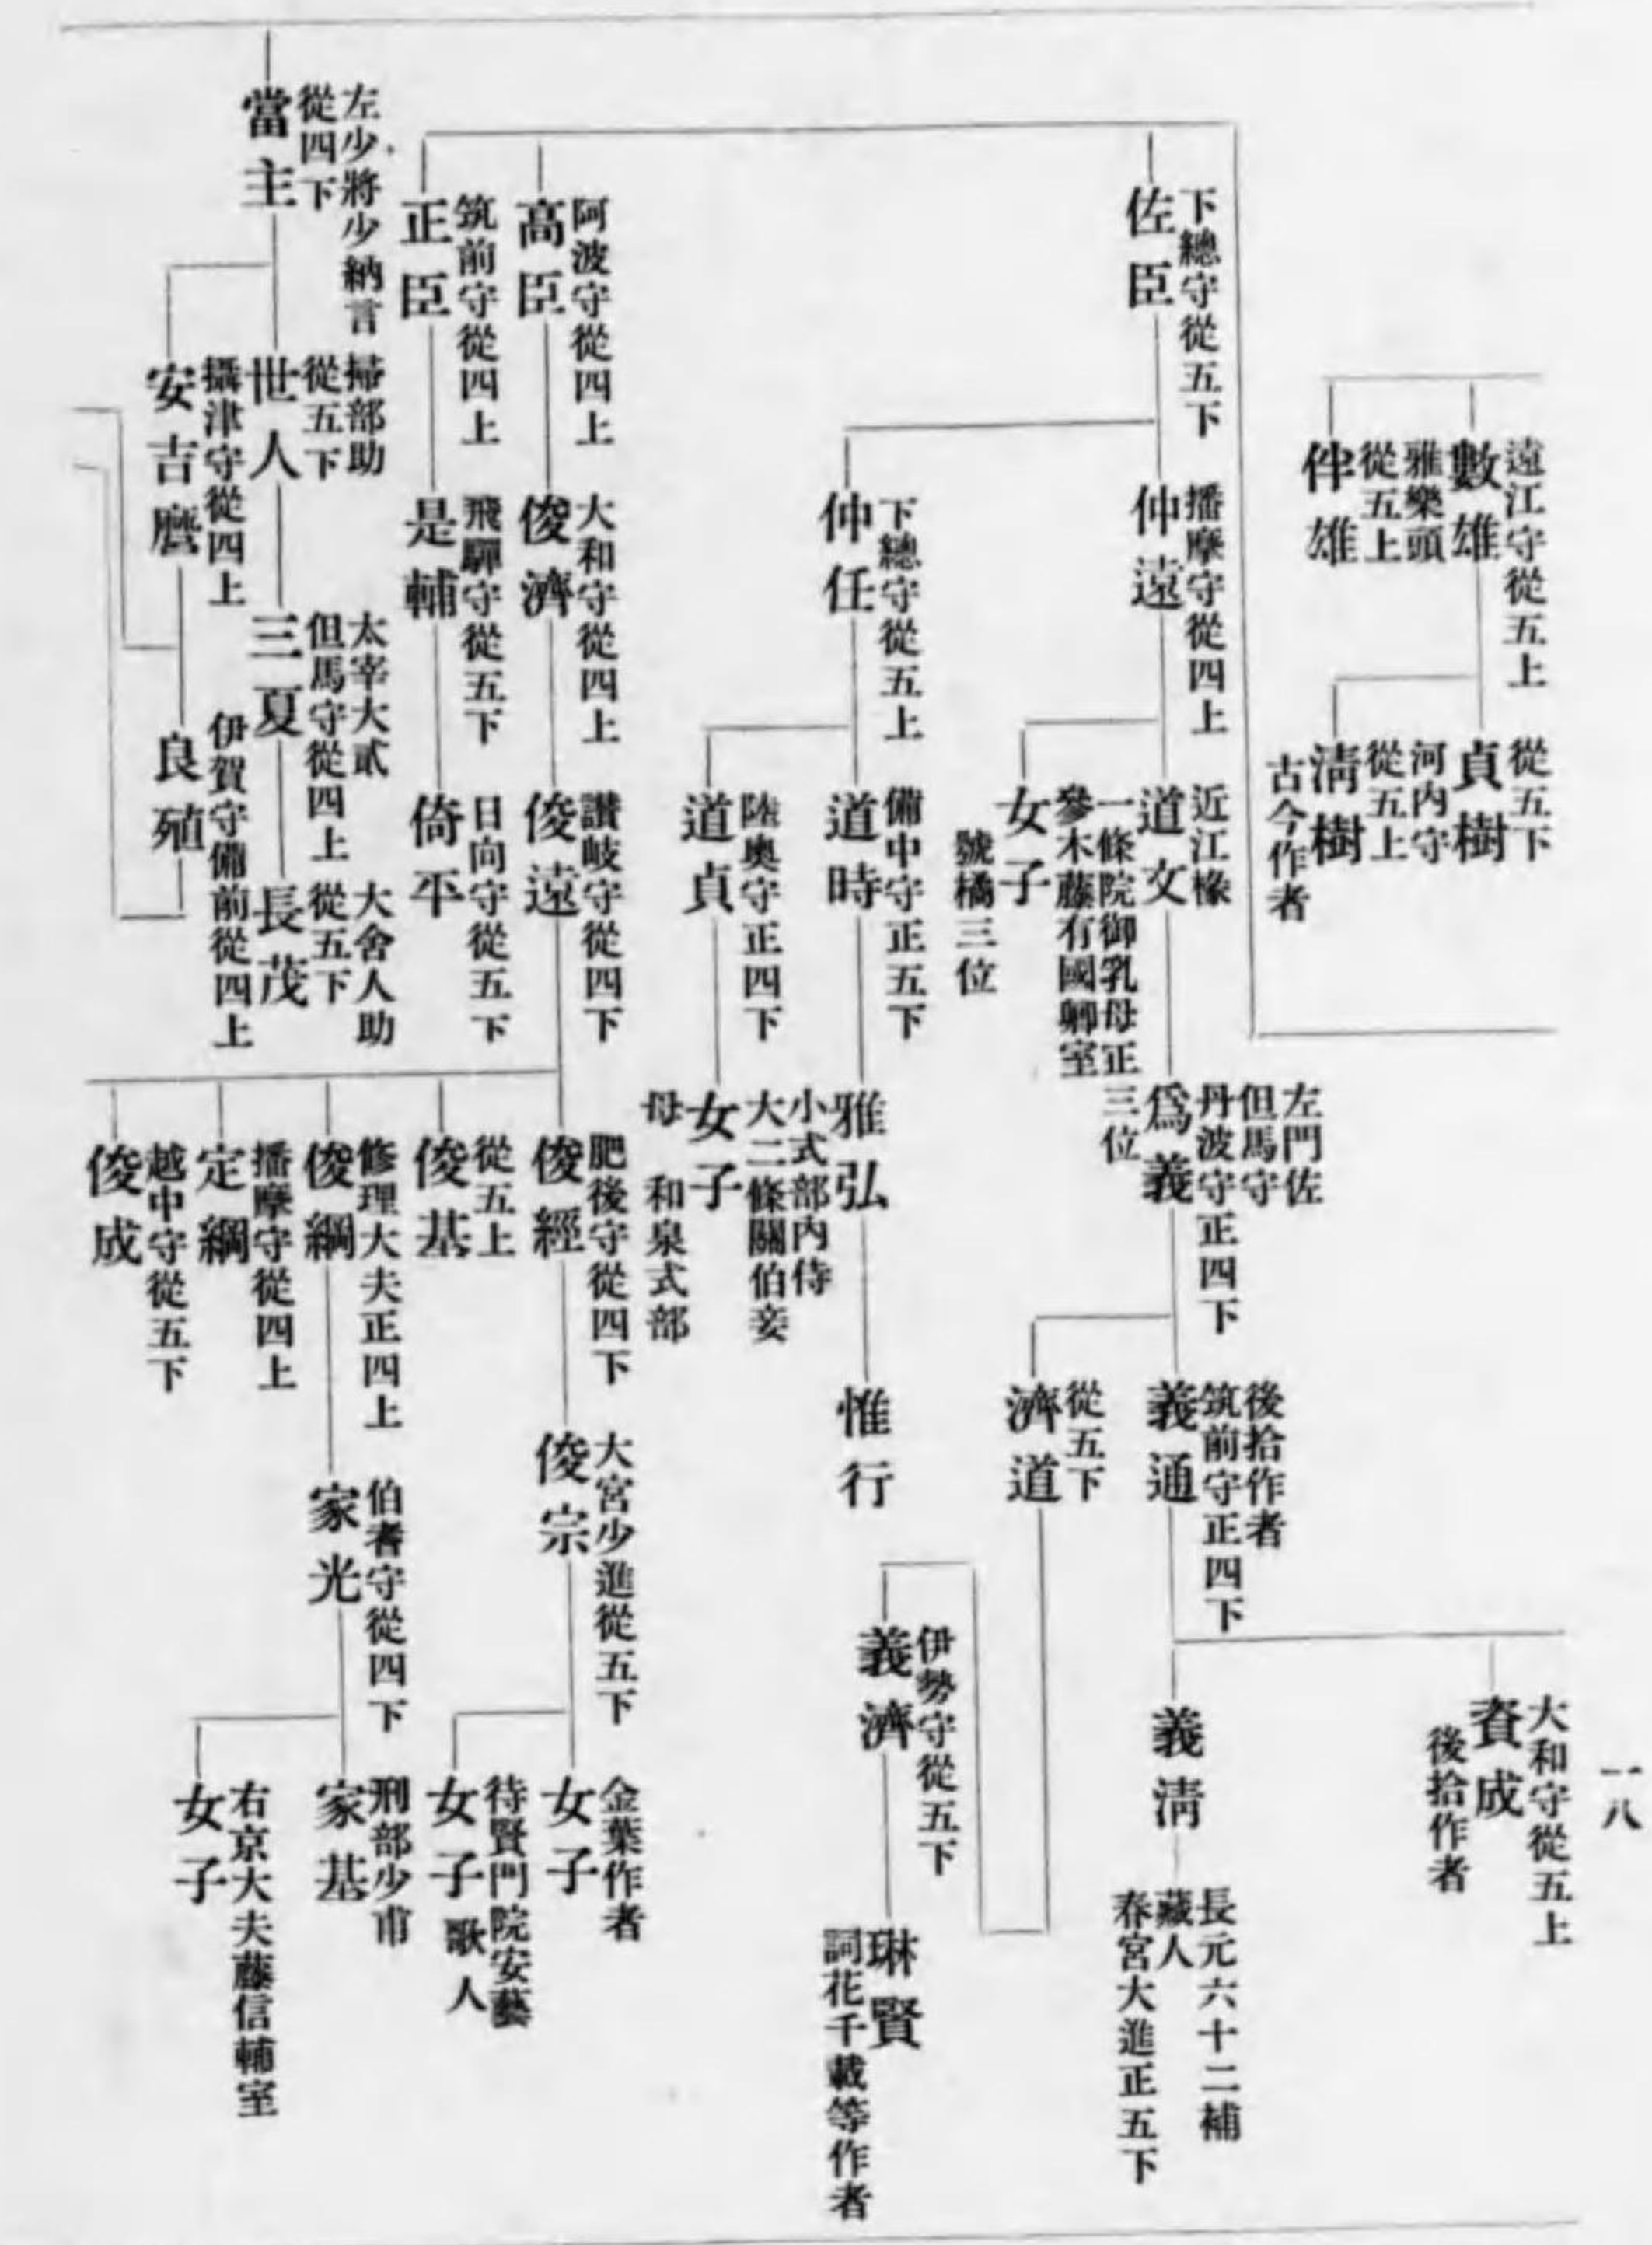 一八
遠江守從五上
數雄
雅樂頭
從五上
伴雄
從五下
貞樹
河内守
從五上
清樹
古今作者
大和守從五上
資成
後拾作者
下總守從五下
佐臣
播摩守從四上
仲遠
近江掾
道文
一條院御乳母正三位
參木藤有國卿室
女子
號橘三位
左門佐
但馬守
丹波守正四下
爲義
後拾作者
筑前守正四下
義通
從五下
濟道
義清
長元六十二補
藏人
春宮大進正五下
伊勢守從五下
義濟
琳賢
詞花千載等作者
下總守從五上
仲任
備中守正五下
道時
雅弘
惟行
陸奥守正四下
道貞
小式部内侍
大二條關伯妾
女子
母 和泉式部
阿波守從四上
高臣
大和守從四上
俊濟
讃岐守從四下
俊遠
肥後守從四下
俊經
大宮少進從五下
俊宗
金葉作者
女子
待賢門院安藝
女子 歌人
從五上
俊基
修理大夫正四上
俊綱
伯耆守從四下
家光
刑部少甫
家基
右京大夫藤信輔室
女子
播摩守從四上
定綱
越中守從五下
俊成
筑前守從四上
正臣
飛驒守從五下
是輔
日向守從五下
倚平
左少將少納言
從四下
當主
掃部助
從五下
世人
太宰大貳
但馬守從四上
三夏
大舍人助
從五下
長茂
攝津守從四上
安吉麿
伊賀守備前從四上
良殖